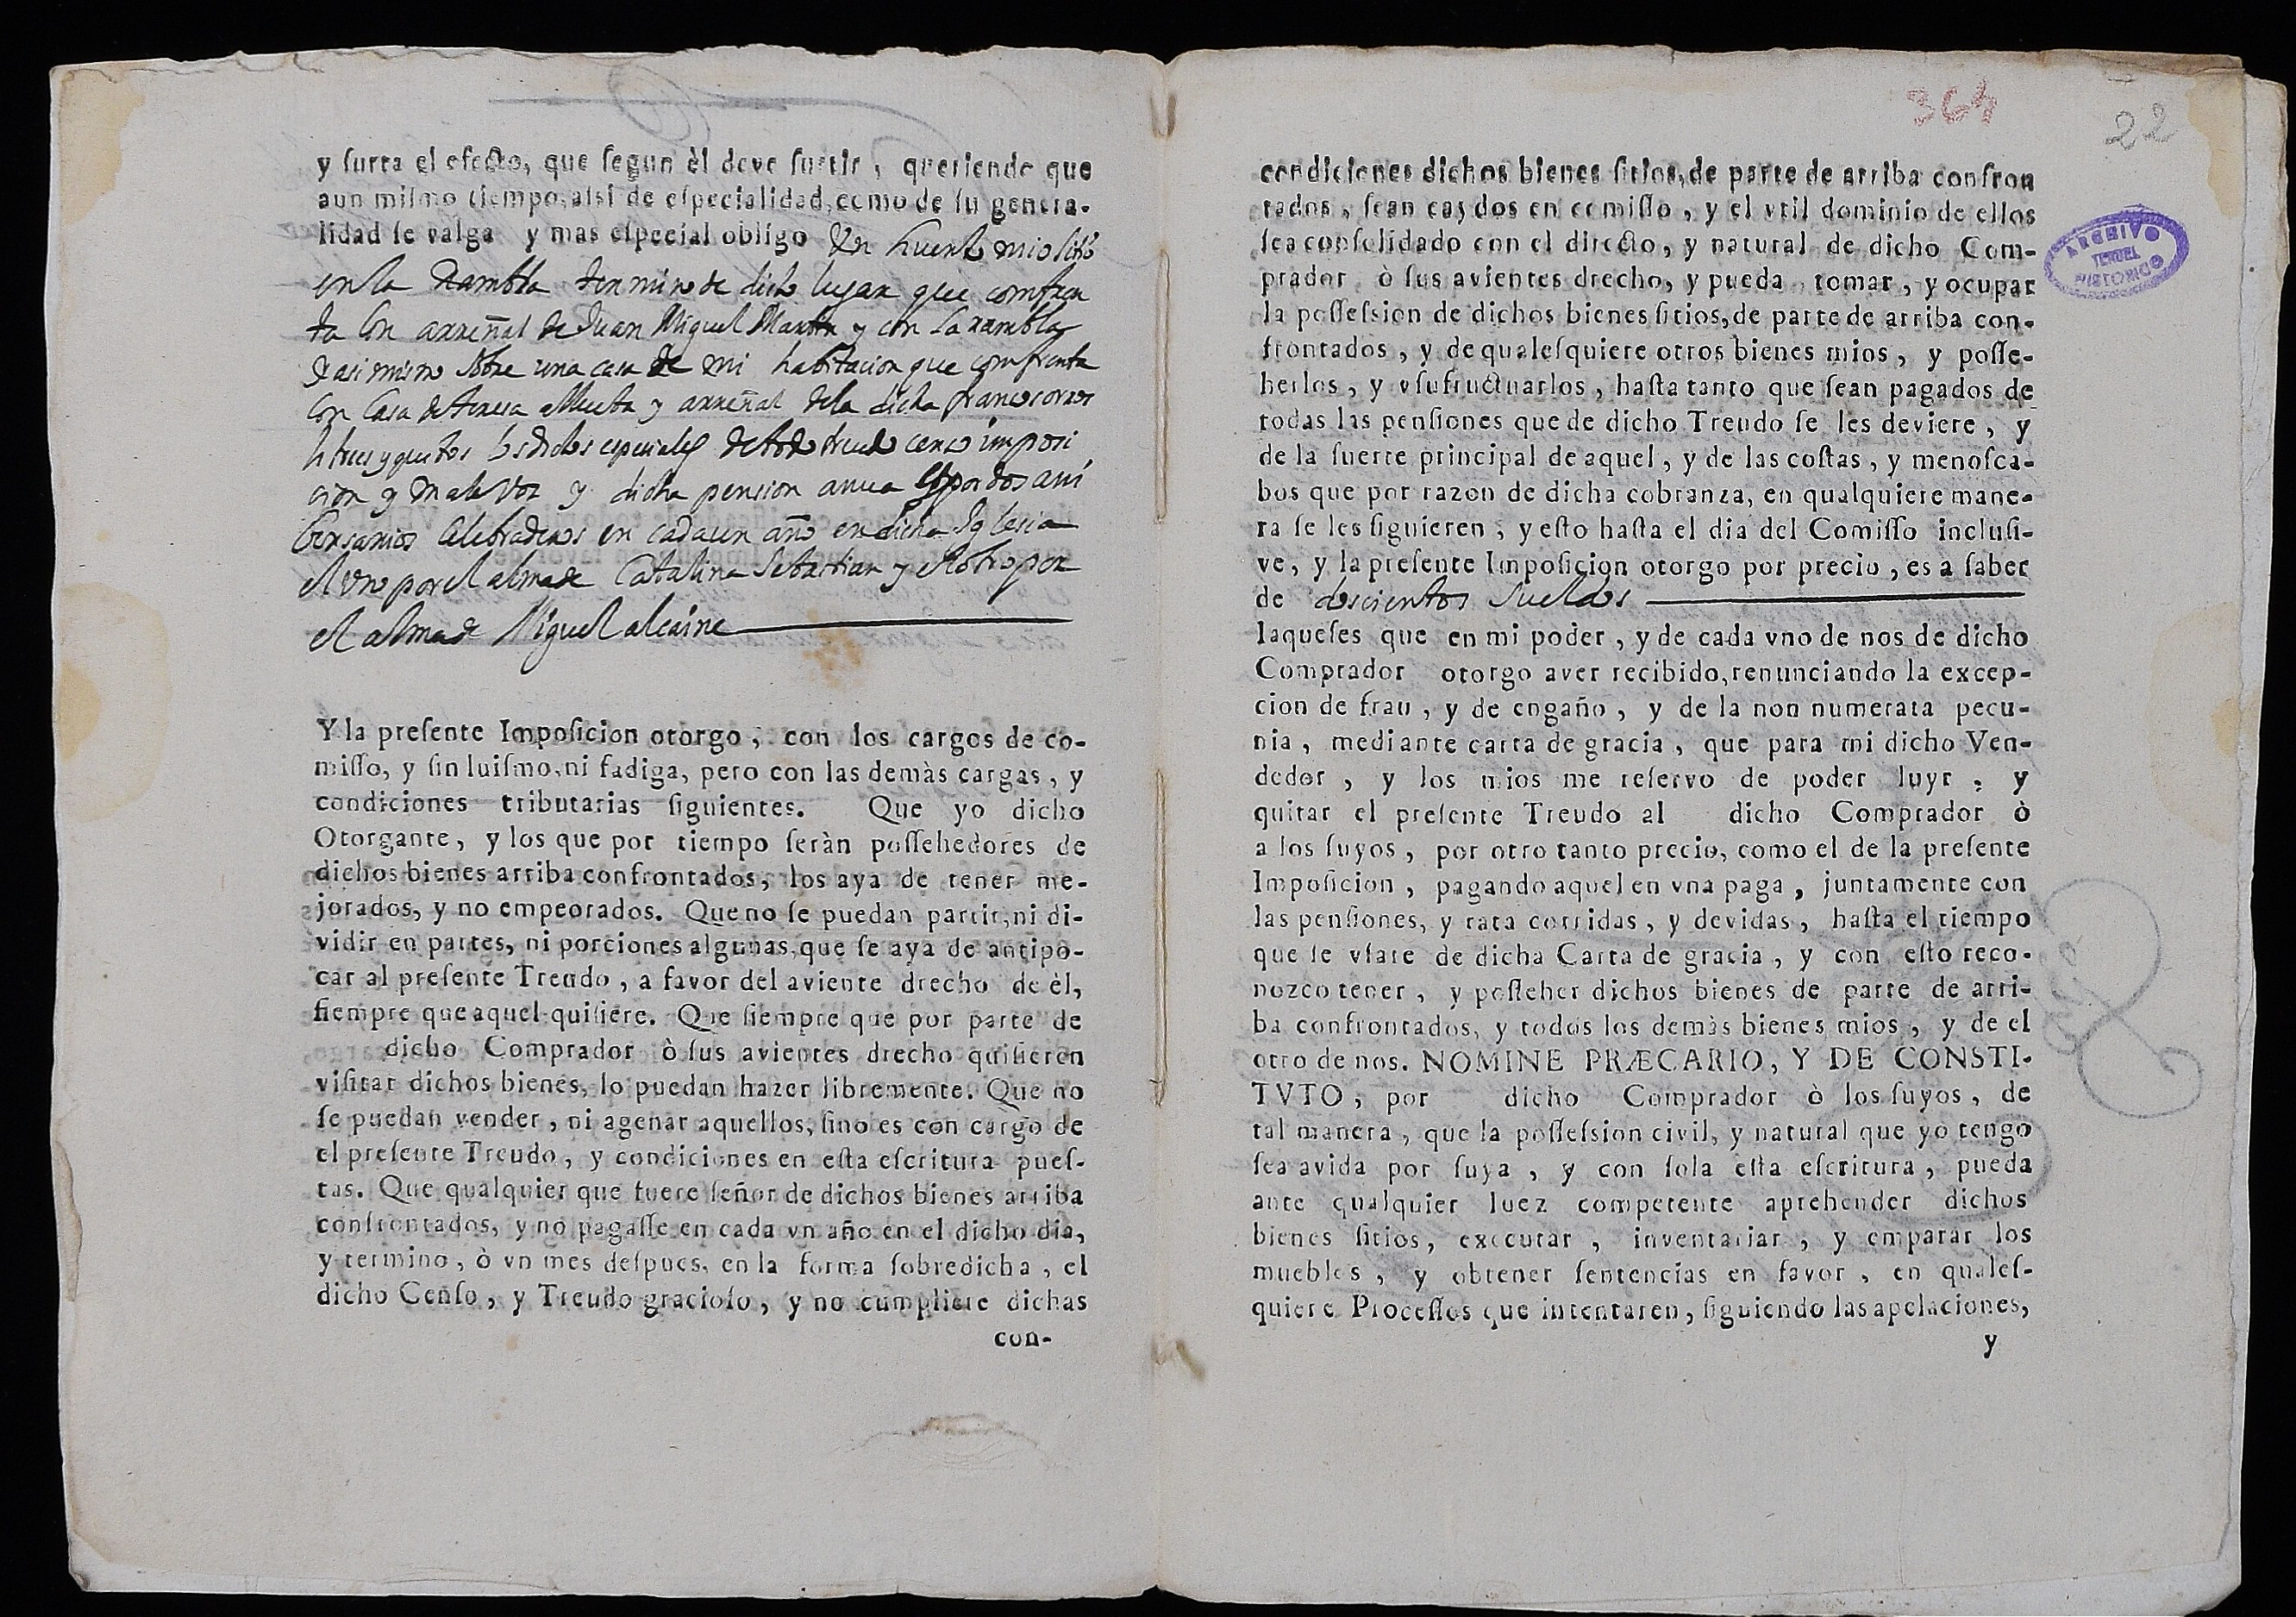 y surta el efecto, que segun èl deve surtir, queriendo que
aun mismo tiempo, assi de especialidad, como de su genera-
lidad se valga y mas especial obligo Un huerto mio sitio
en la Rambla termino de dicho lugar que comfron
ta con arreñal de Juan Miguel Martin y con la rambla
y asi mismo sobre una casa de mi habitacion que comfrenta
con Casa de Teresa y arreñal de la dicha francos
libres y quitos los dichos especiales de todo treudo censo imposi
cion y mala voz y dicha pension anua es por dos ani
bersarios celebraderos en cada un año en dicha Iglesia
el uno por el alma de Catalina Sebastian y el otro por
el alma de Miguel alcaine
Y la presente Imposicion otorgo, con los cargos de co-
misso, y sin luismo, ni fadiga, pero con las demàs cargas, y
condiciones tributarias siguientes. Que yo dicho
Otorgante, y los que por tiempo seràn possehedores de
dichos bienes arriba confrontados, los aya de tener me-
jorados, y no empeorados. Que no se puedan partir, ni di-
vidir en partes, ni porciones algunas, que se aya de antipo-
car al presente Treudo, a favor del aviente drecho de èl,
siempre que aquel quisiere. Que siempre que por parte de
dicho Comprador ò sus avientes drecho quisieren
visitar dichos bienes, lo puedan hazer libremente. Que no
se puedan vender, ni agenar aquellos, sino es con cargo de
el presente Treudo, y condiciones en esta escritura pues-
tas. Que qualquier que fuere señor de dichos bienes arriba
confrontados, y no pagasse en cada vn año en el dicho dia,
y termino, ò vn mes despues, en la forma sobredicha, el
dicho Censo, y Treudo gracioso, y no cumpliere dichas
con-
364
22
condiciones dichos bienes sitios, de parte de arriba confron
tados, sean caydos en comisso, y el vtil dominio de ellos
sea consolidado con el directo, y natural de dicho Com-
prador ò sus avientes drecho, y pueda tomar, y ocupar
la possession de dichos bienes sitios, de parte de arriba con-
frontados, y de qualesquiere otros bienes mios, y posse-
herlos, y vsufructuarlos, hasta tanto que sean pagados de
todas las pensiones que de dicho Treudo se les deviere, y
de la suerte principal de aquel, y de las costas, y menosca-
bos que por razon de dicha cobranza, en qualquiere mane-
ra se les siguieren, y esto hasta el dia del Comisso inclusi-
ve, y la presente Imposicion otorgo por precio, es a saber
de doscientos sueldos
laqueses que en mi poder, y de cada vno de nos de dicho
Comprador otorgo aver recibido, renunciando la excep-
cion de frau, y de engaño, y de la non numerata pecu-
nia, mediante carta de gracia, que para mi dicho Ven-
dedor, y los mios me reservo de poder luyr, y
quitar el presente Treudo al dicho Comprador ò
a los suyos, por otro tanto precio, como el de la presente
Imposicion, pagando aquel en vna paga, juntamente con
las pensiones, y rata corridas, y devidas, hasta el tiempo
que se vsare de dicha Carta de gracia, y con esto reco-
nozco tener, y posseher dichos bienes de parte de arri-
ba confrontados, y todos los demàs bienes mios, y de el
otro de nos. NOMINE PRÆCARIO, Y DE CONSTI-
TVTO, por dicho Comprador ò los suyos, de
tal manera, que la possession civil, y natural que yo tengo
sea avida por suya, y con sola esta escritura, pueda
ante qualquier Iuez competente aprehender dichos
bienes sitios, executar, inventariar, y emparar los
muebles, y obtener sentencias en favor, en quales-
quiere Processos que intentaren, siguiendo las apelaciones,
y
ARCHIVO
TERUEL
HISTORICO